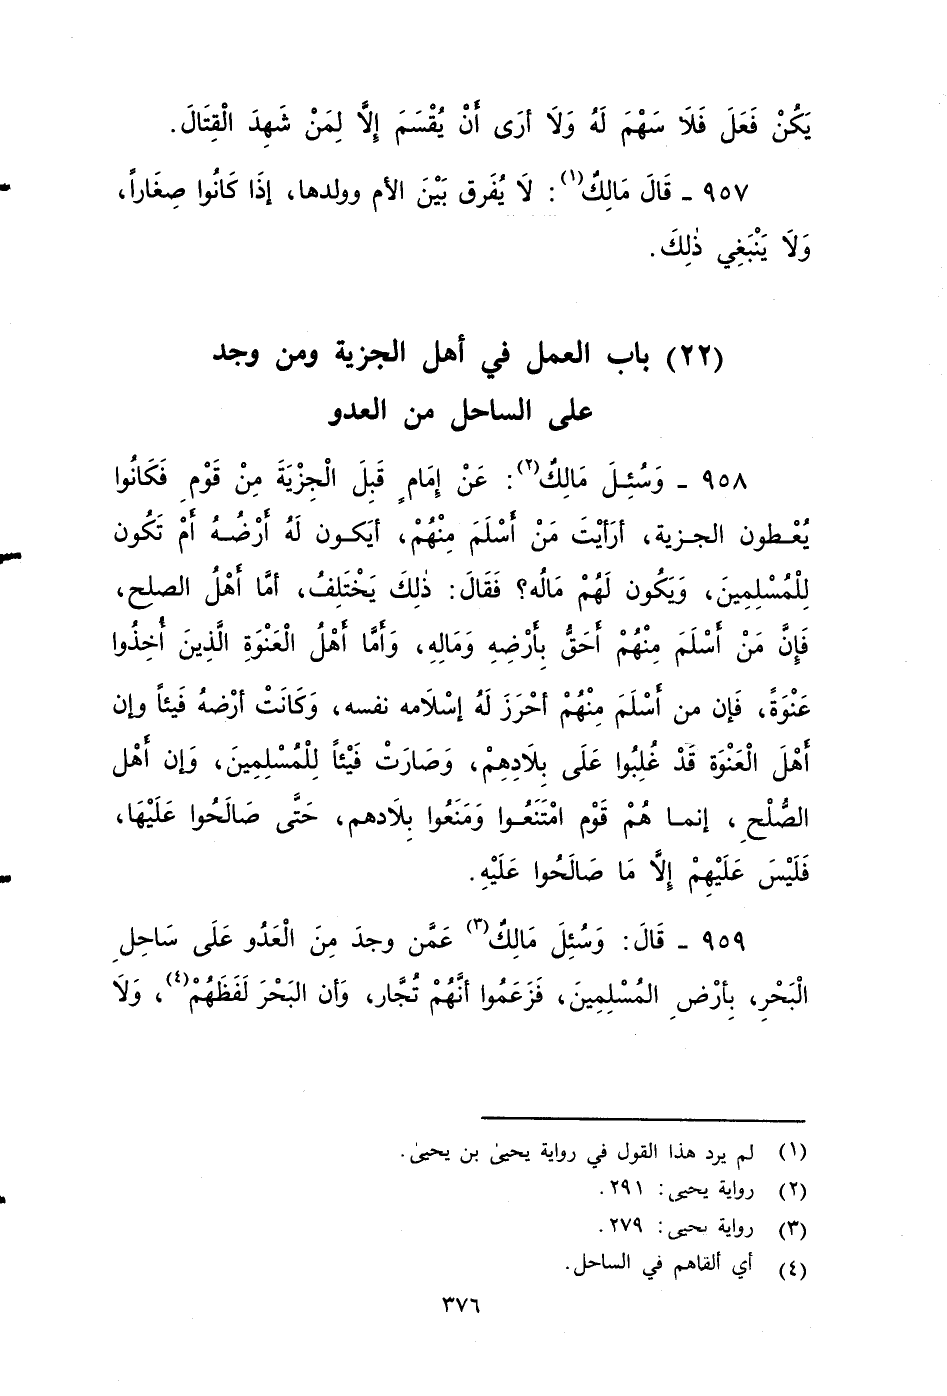 يَكُنْ فَعَلَ فَلَا سَهْمَ لَهُ وَلَا أرَى أَنْ يُقْسَمَ إِلَّا لِمَنْ شَهِدَ الْقِتَالَ.
٩٥٧ ـ قَالَ مَالِكٌ(١): لَا يُفَرق بَيْنَ الأم وولدها، إذَا كَانُوا صِغَاراً،
وَلَا يَنْبَغِي ذٰلِكَ.
(٢٢) باب العمل في أهل الجزية ومن وجد
على الساحل من العدو
٩٥٨ ـ وَسُئِلَ مَالِكٌ(٢): عَنْ إِمَامٍ قَبِلَ الْجِزْيَةَ مِنْ قَوْمٍ فَكَانُوا
يُعْطون الجزية، أرَأيْتَ مَنْ أَسْلَمَ مِنْهُمْ، أيَكون لَهُ أَرْضُهُ أَمْ تَكُون
لِلْمُسْلِمِينَ، وَيَكُون لَهُمْ مَالُه؟ فَقَالَ: ذٰلِكَ يَخْتَلِفُ، أمَّا أَهْلُ الصلح،
فَإِنَّ مَنْ أَسْلَمَ مِنْهُمْ أحَقُّ بِأَرْضِهِ وَمَالِهِ، وَأَمَّا أَهْلُ الْعَنْوَةِ الَّذِينَ أُخِذُوا
عَنْوَةً، فَإن من أَسْلَمَ مِنْهُمْ أحْرَزَ لَهُ إسْلَامه نفسه، وَكَانَتْ أرْضهُ فَيئاً وإن
أَهْلَ الْعَنْوَة قَدْ غُلِبُوا عَلَى بِلَادِهِمْ، وَصَارَتْ فَيْئاً لِلْمُسْلِمِينَ، وَإن أَهْل
الصُّلْحِ، إنما هُمْ قَوْم امْتَنَعُوا وَمَنَعُوا بِلَادهم، حَتَّى صَالَحُوا عَلَيْهَا،
فَلَيْسَ عَلَيْهِمْ إِلَّا مَا صَالَحُوا عَلَيْهِ.
٩٥٩ ـ قَالَ: وَسُئِلَ مَالِكٌ(٣) عَمَّن وجدَ مِنَ الْعَدُو عَلَى سَاحِلِ
الْبَحْرِ، بِأرْضِ المُسْلِمِينَ، فَزَعَمُوا أنَّهُمْ تُجَّار، وَأن البَحْرَ لَفَظَهُمْ(٤)، وَلَا
(١) لم يرد هذا القول في رواية يحيىٰ بن يحيىٰ.
(٢) رواية يحيى: ٢٩١.
(٣) رواية يحيى: ٢٧٩.
(٤) أي ألقاهم في الساحل.
٣٧٦